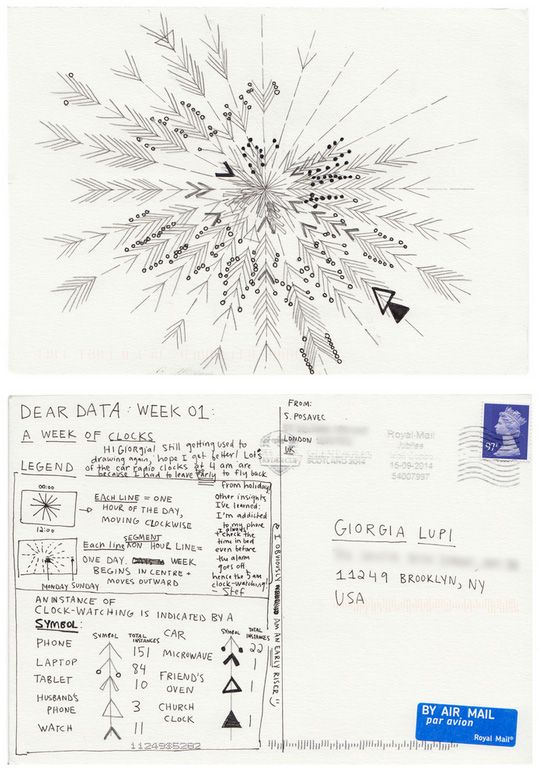 DEAR DATA: WEEK 01:
A WEEK OF CLOCKS
Hi Giorgia! Still getting used to
drawing again, hope I get better! Lots
of the car radio clocks at 4 am are
because I had to leave early to fly back
from holiday.
other insights
I've learned:
I'm addicted
to my phone
I always
check the
time in bed
even before
the alarm
goes off
hence the 5am
clock-watching!
- Stef
& I OBVIOUSLY AM AN EARLY RISER (:
LEGEND
00:00
12:00
EACH LINE = ONE
HOUR OF THE DAY,
MOVING CLOCKWISE
Each line SEGMENT ON HOUR LINE =
ONE DAY. WEEK
BEGINS IN CENTRE +
MOVES OUTWARD
MONDAY SUNDAY
AN INSTANCE OF
CLOCK-WATCHING IS INDICATED BY A
SYMBOL:
SYMBOL TOTAL INSTANCES
PHONE 151
LAPTOP 84
TABLET 10
HUSBAND'S PHONE 3
WATCH 11
SYMBOL TOTAL INSTANCES
CAR 22
MICROWAVE 1
FRIEND'S OVEN 1
CHURCH CLOCK 1
11249$5202
FROM:
S. POSAVEC
LONDON
UK
Royal Mail
SCOTLAND 2014
15-09-2014
54007997
97p
GIORGIA LUPI
11249 BROOKLYN, NY
USA
BY AIR MAIL
par avion
Royal Mail®